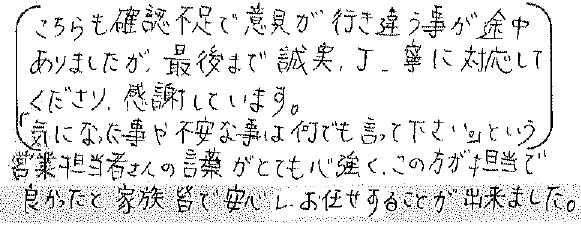 こちらも確認不足で意見が行き違う事が途中
ありましたが、最後まで誠実、丁寧に対応して
くださり、感謝しています。
『気になった事や不安な事は何でも言って下さい。』という
営業担当者さんの言葉がとても心強く、この方が担当で
良かったと家族皆で安心し、お任せすることが出来ました。